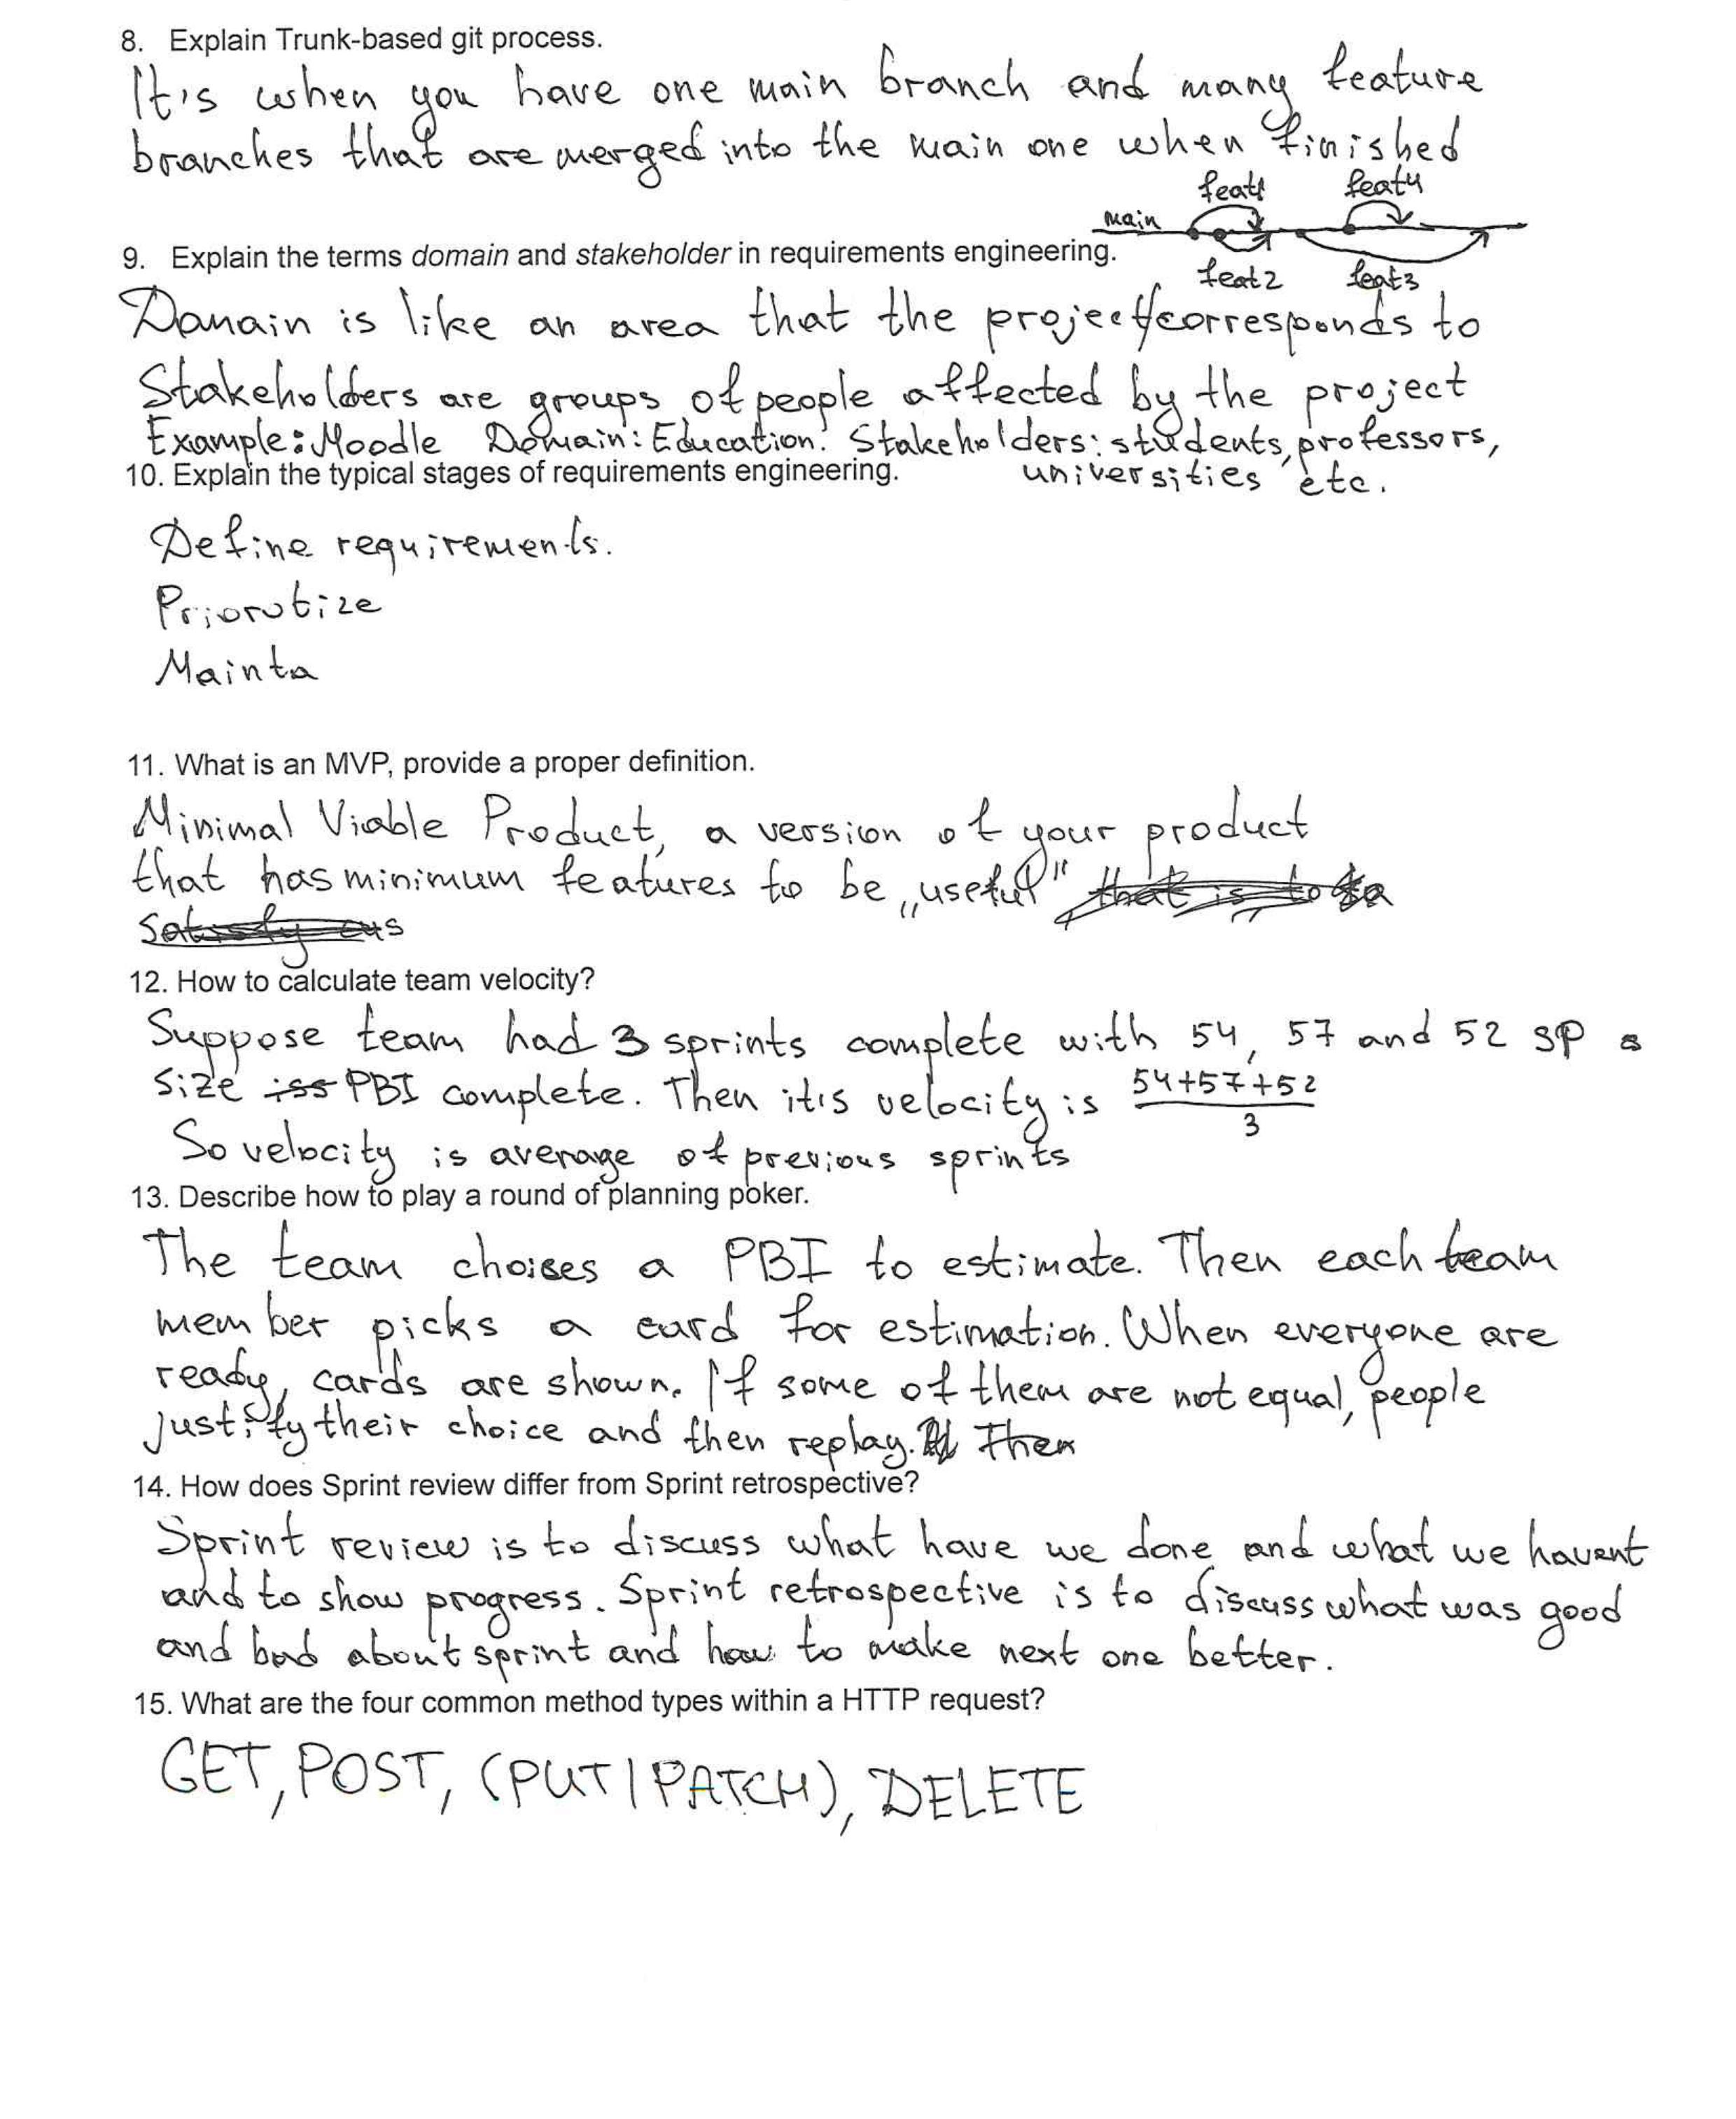 8. Explain Trunk-based git process.
It's when you have one main branch and many feature
branches that are merged into the main one when finished
feat1 feat4
main
9. Explain the terms domain and stakeholder in requirements engineering.
feat2 feat3
Domain is like an area that the project corresponds to
Stakeholders are groups of people affected by the project
Example: Moodle Domain: Education. Stakeholders: students, professors,
universities etc.
10. Explain the typical stages of requirements engineering.
Define requirements.
Priorotize
Mainta
11. What is an MVP, provide a proper definition.
Minimal Viable Product, a version of your product
that has minimum features to be „useful" that is to sa
satisfy cus
12. How to calculate team velocity?
Suppose team had 3 sprints complete with 54, 57 and 52 SP
size iss PBI complete. Then it's velocity is 54+57+52
3
So velocity is average of previous sprints
13. Describe how to play a round of planning poker.
The team choises a PBI to estimate. Then each team
member picks a card for estimation. When everyone are
ready, cards are shown. If some of them are not equal, people
justify their choice and then replay. Then
14. How does Sprint review differ from Sprint retrospective?
Sprint review is to discuss what have we done and what we havent
and to show progress. Sprint retrospective is to discuss what was good
and bad about sprint and how to make next one better.
15. What are the four common method types within a HTTP request?
GET, POST, (PUT | PATCH), DELETE